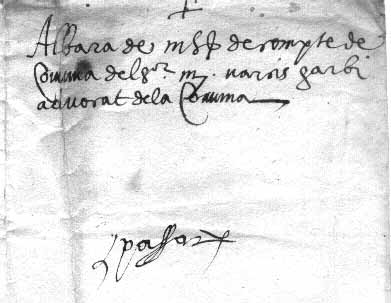 Albara de de compte de
Comuna del Sor m. narcis garbi
advocat dela Comuna
passar